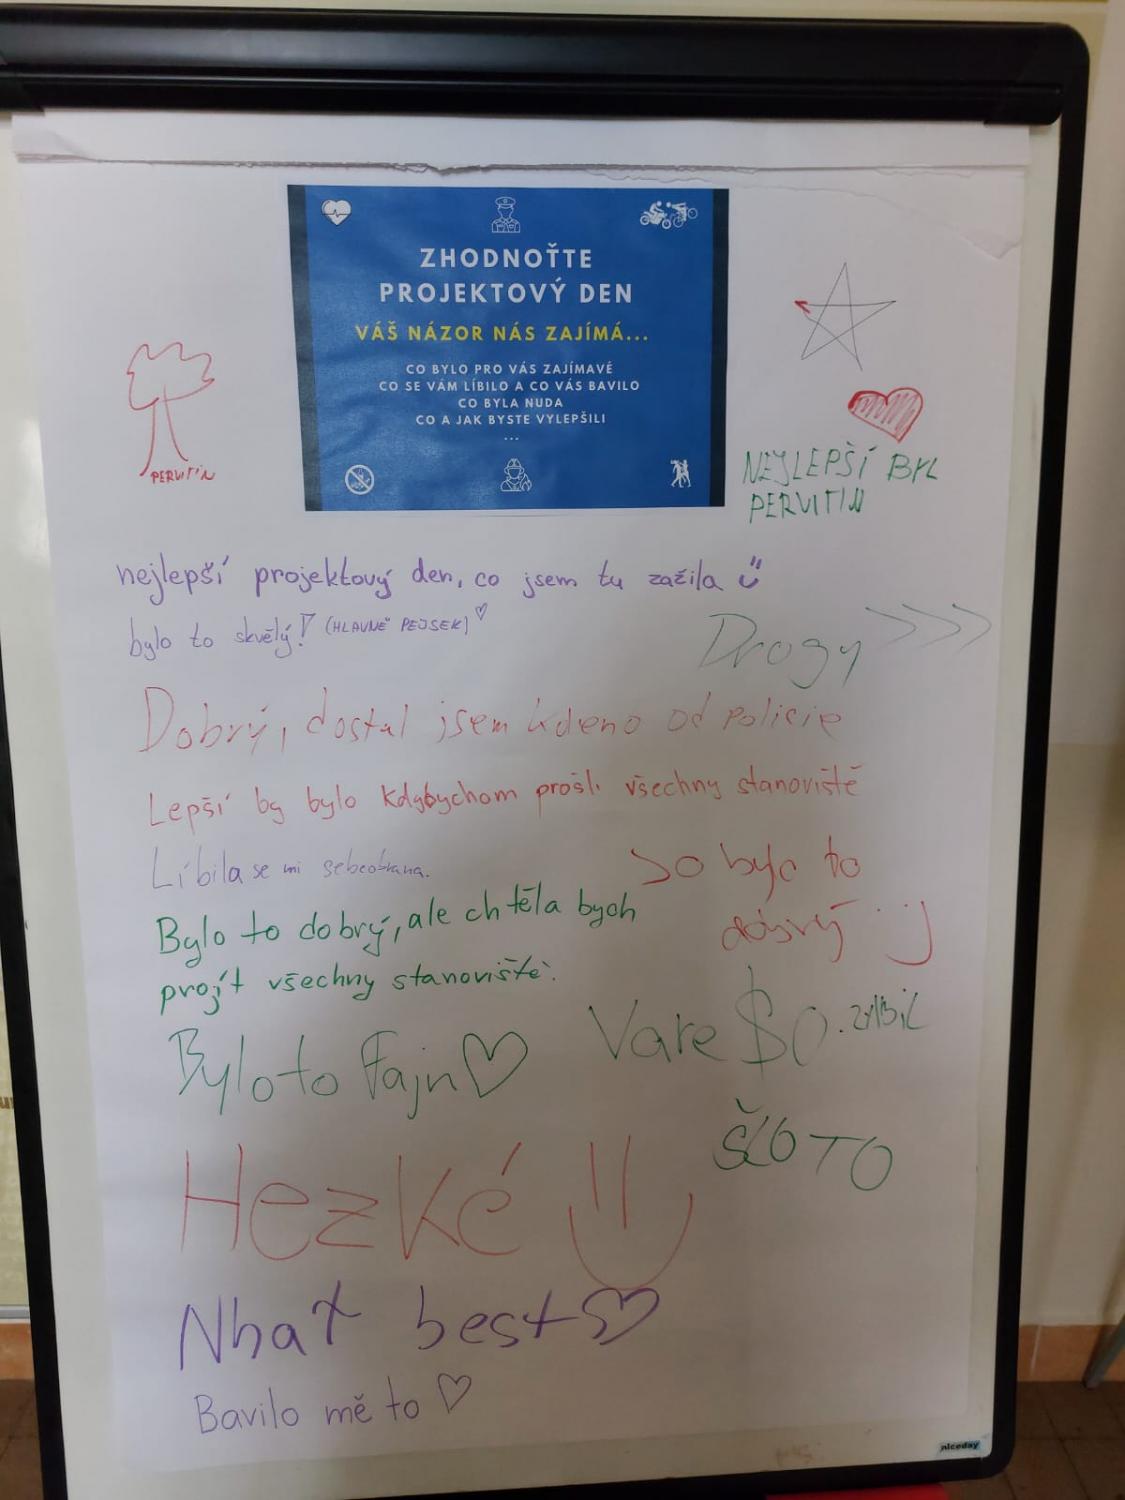 ZHODNOŤTE
PROJEKTOVÝ DEN
VÁŠ NÁZOR NÁS ZAJÍMÁ...
CO BYLO PRO VÁS ZAJÍMAVÉ
CO SE VÁM LÍBILO A CO VÁS BAVILO
CO BYLA NUDA
CO A JAK BYSTE VYLEPŠILI
...
PERVITIN
NEJLEPŠÍ BYL
PERVITIN
nejlepší projektový den, co jsem tu zažila
bylo to skvělý! (HLAVNĚ PEJSEK)
Drogy >>>
Dobrý, dostal jsem od policie
Lepší by bylo kdybychom prošli všechny stanoviště
Líbila se mi sebeobrana.
Jo bylo to
dobrý :)
Bylo to dobrý, ale chtěla bych
projít všechny stanoviště.
Byloto Fajn
Vare
ŠLO TO
Hezké
Nhat best
Bavilo mě to
niceday